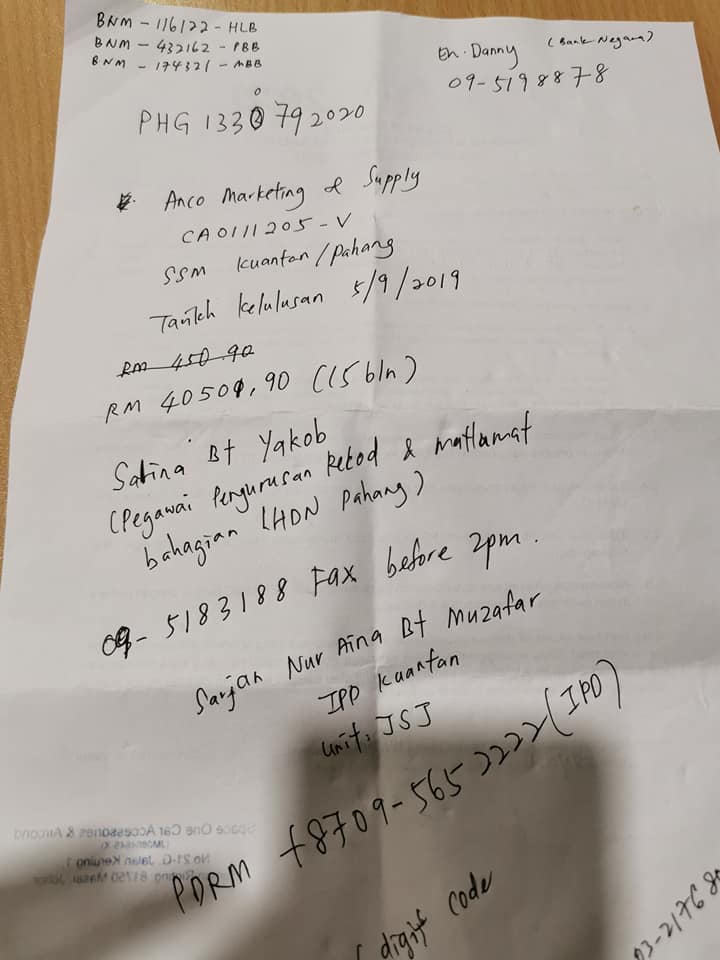 BNM - 116122 - HLB
BNM - 432162 - PBB
BNM - 174321 - MBB
En. Danny (Bank Negara)
09-5198878
PHG 1330792020
Anco Marketing & Supply
CA0111205-V
SSM Kuantan/Pahang
Tarikh Kelulusan 5/9/2019
RM 450.90
RM 40501,90 (15 bln)
Bt Yakob
(Pegawai Pengurusan Rekod & Matlumat
bahagian LHDN Pahang)
09-5183188 Fax before 2pm.
Sarjan Nur Aina Bt Muzafar
IPD Kuantan
Unit: JSJ
PDRM +8709-5652222 (IPD)
digit code
03-2176
Space One Car Accessories & Aircond
No.21-G, Jalan
81750 Masai, Johor